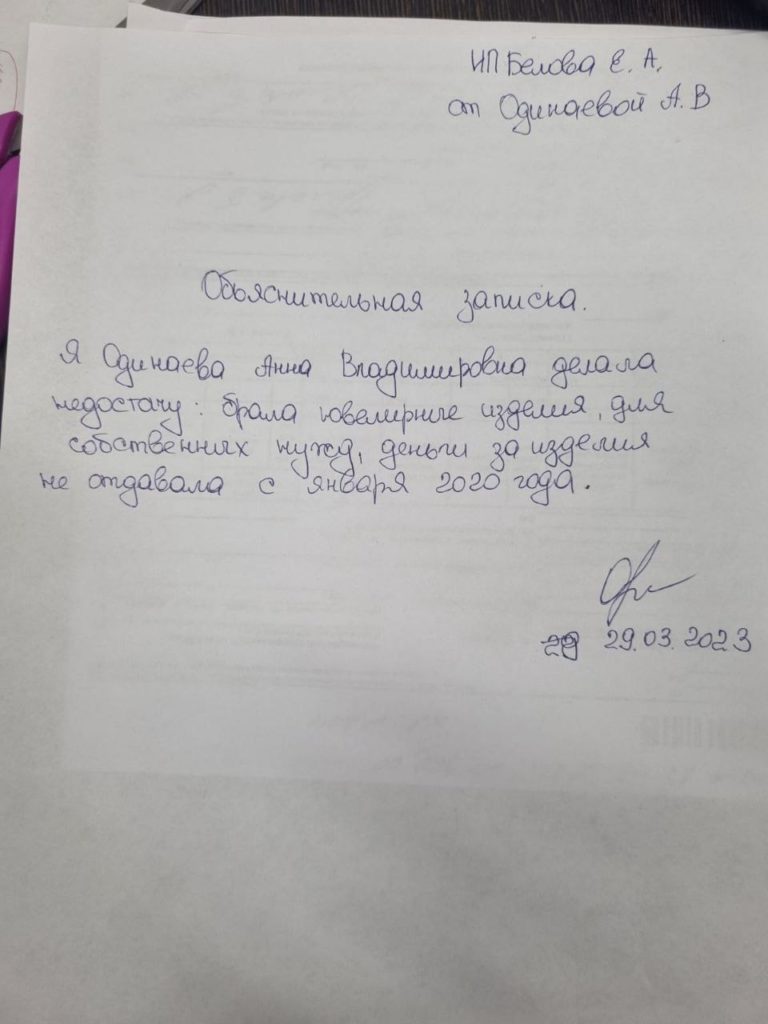 ИП Белова Е. А.
от Одинаевой А. В
Объяснительная записка.
Я Одинаева Анна Владимировна делала
недостачу: брала ювелирные изделия, для
собственных нужд, деньги за изделия
не отдавала с января 2020 года.
29.03.2023